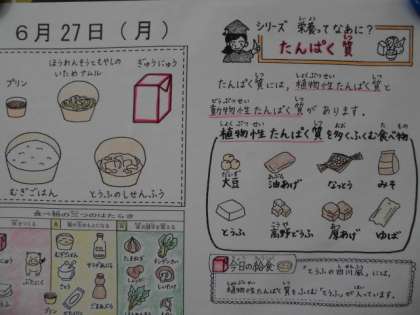 6月27日（月）
ほうれんそうともやしの
いためナムル
ぎゅうにゅう
プリン
むぎごはん
とうふのしせんふう
シリーズ 栄養ってなあに？
たんぱく質
たんぱく質には、植物性たんぱく質と
動物性たんぱく質があります。
植物性たんぱく質を多くふくむ食べ物
大豆
油あげ
なっとう
みそ
とうふ
高野どうふ
厚あげ
ゆば
今日の給食
「とうふの四川風」には、
植物性たんぱく質をふくむ「とうふ」が入っています。